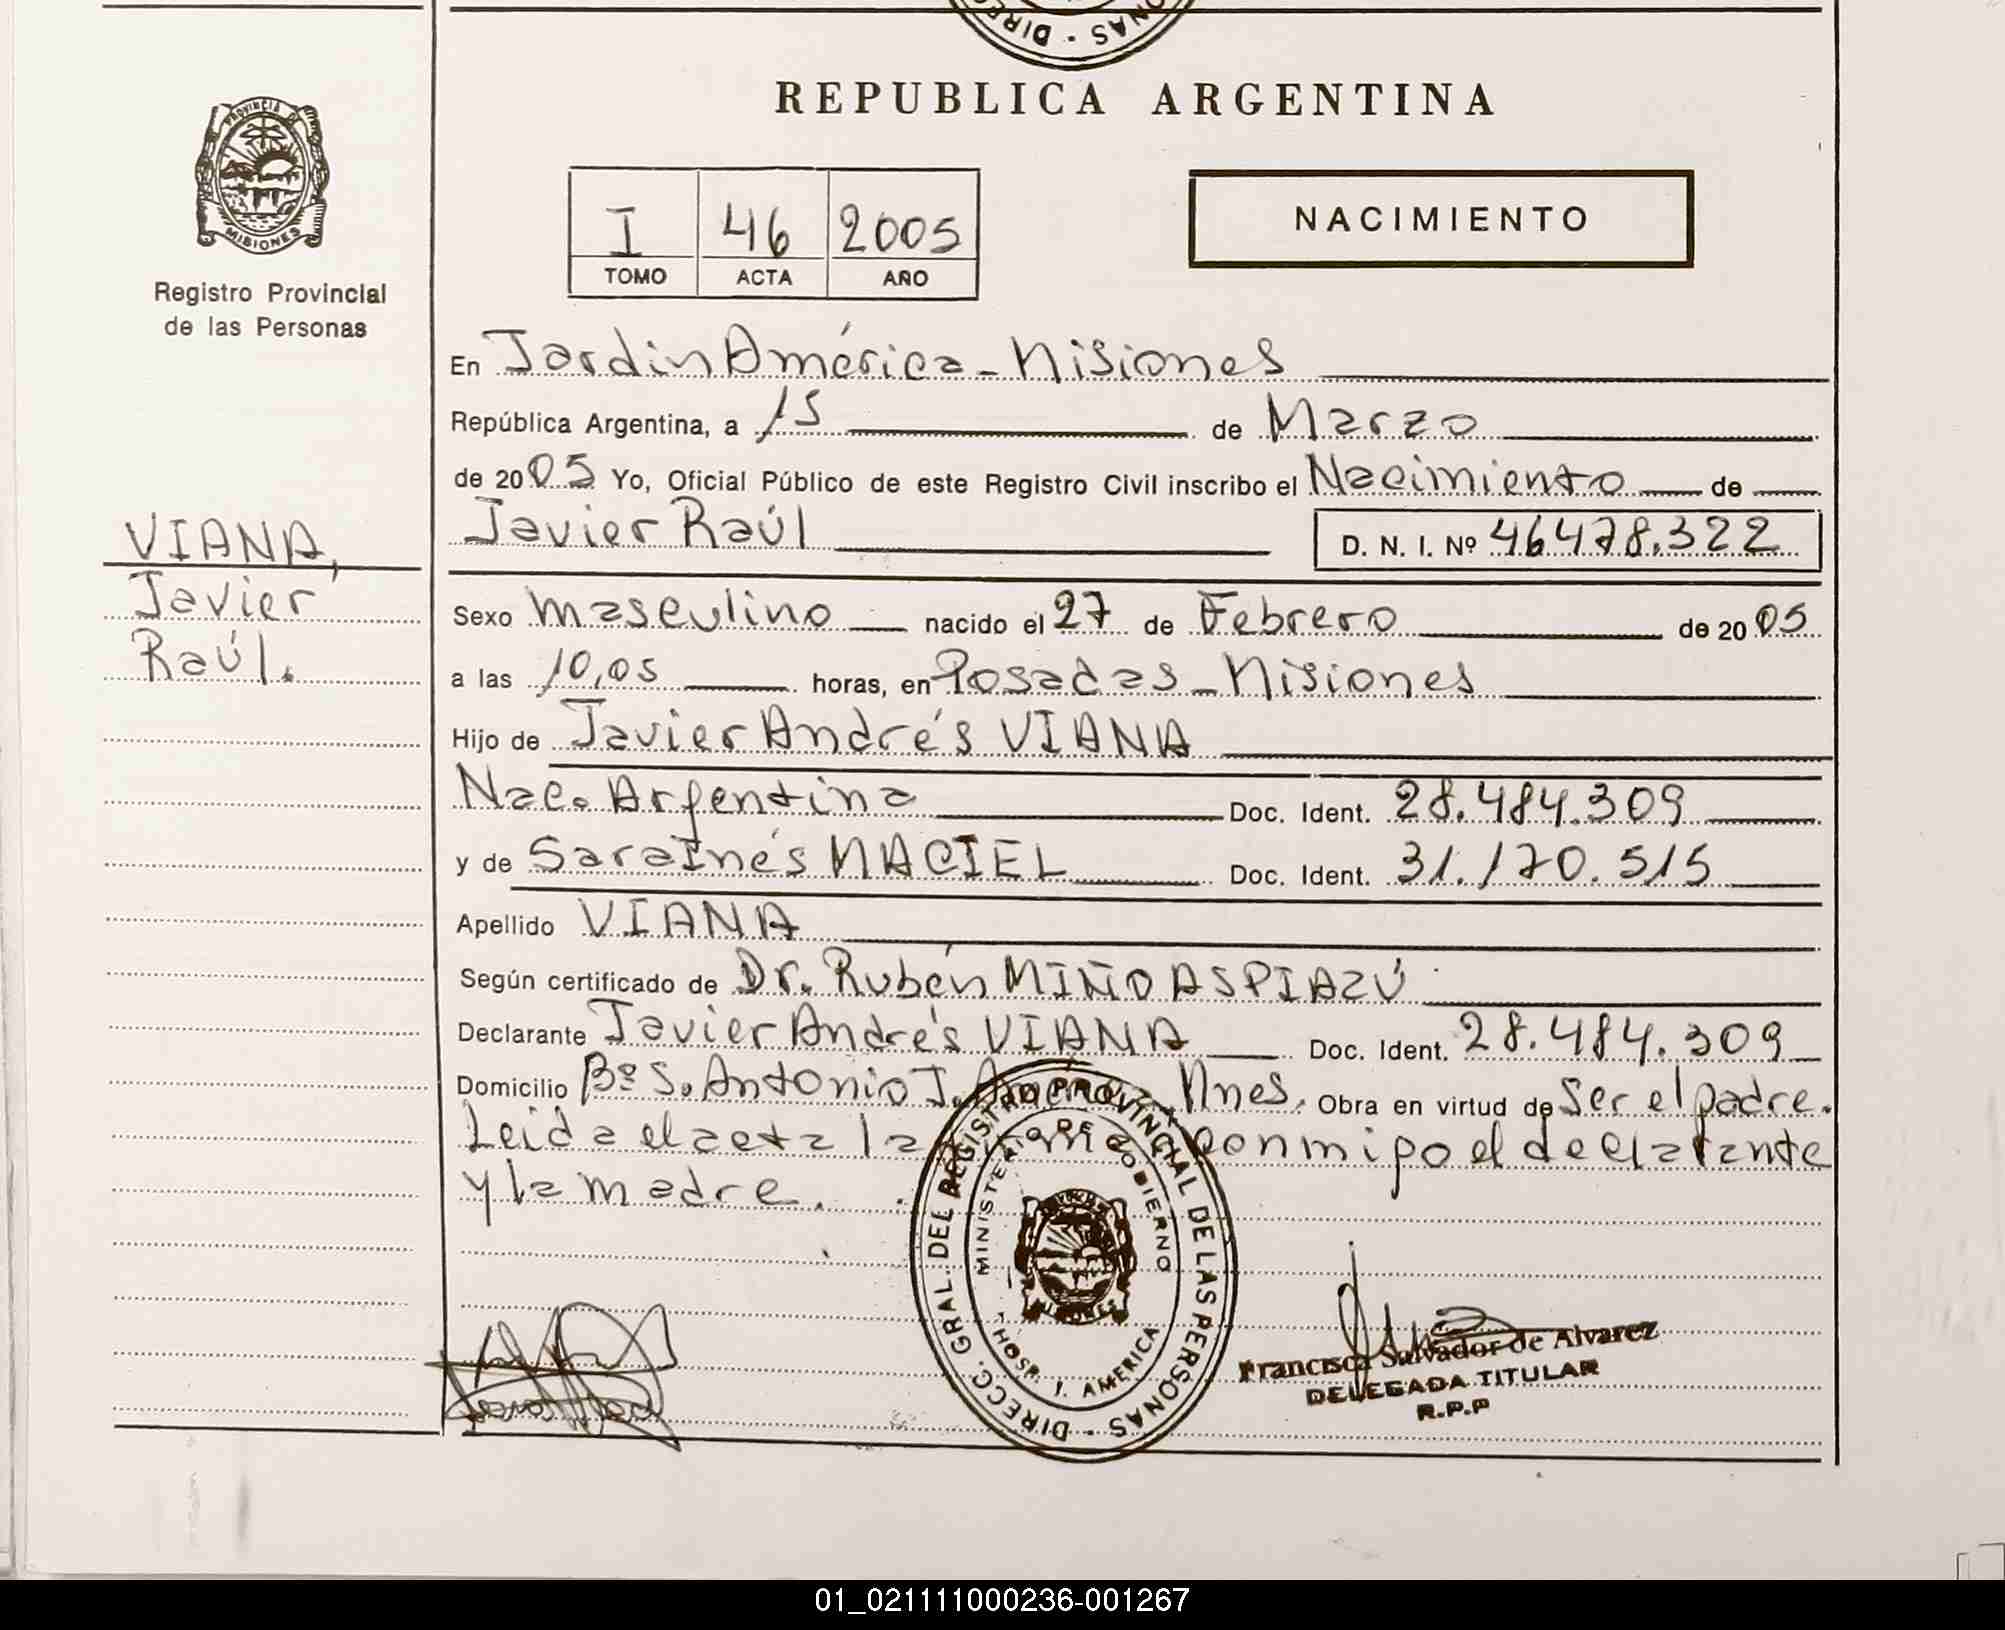 DIRECC. - SONAS
REPUBLICA ARGENTINA
PROVINCIA DE MISIONES
Registro Provincial
de las Personas
I 46 2005
TOMO ACTA AÑO
NACIMIENTO
En Jardin América - Misiones
República Argentina, a 15 de Marzo
de 2005 Yo, Oficial Público de este Registro Civil inscribo el Nacimiento de
Javier Raúl D. N. I. Nº 46478.322
VIANA,
Javier
Raúl.
Sexo Masculino nacido el 27 de Febrero de 2005
a las 10,05 horas, en Posadas - Misiones
Hijo de Javier Andrés VIANA
Nac. Argentina Doc. Ident. 28.484.309
y de Sara Inés MACIEL Doc. Ident. 31.170.515
Apellido VIANA
Según certificado de Dr. Rubén MIÑO ASPIAZÚ
Declarante Javier Andrés VIANA Doc. Ident. 28.484.309
Domicilio Bº S. Antonio J. América Mnes. Obra en virtud de Ser el padre.
Leida el acta la conmigo el declarante
y la madre.
DIRECC. GRAL. DEL REGISTRO PROVINCIAL DE LAS PERSONAS -
MINISTERIO DE GOBIERNO
HOSP. J. AMERICA
MISIONES
Francisca Salvador de Alvarez
DELEGADA TITULAR
R.P.P
01_021111000236-001267